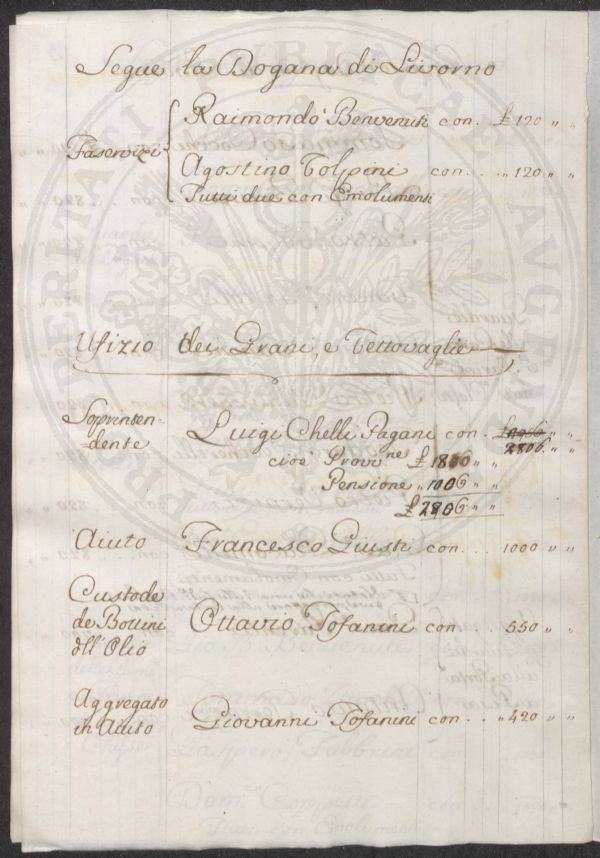 Segue la Dogana di Livorno
Faservizi
Raimondo Benvenuti con .. £ 120 " "
Agostino Tolpini con ... " 120 " "
Tutti due con Emolumenti
Ufizio dei Grani, e Vettovaglie
Soprinten-
dente
Luigi Chelli Pagani con . £ " "
2806. " "
cioè Provi.ne £ 1800 " "
Pensione " 1006 " "
£ 2806 " "
Aiuto Francesco Giusti con ... 1000 " "
Custode
de Bottini
dll' Olio
Ottavio Tofanini con ... 550 " "
Aggregato
in Aiuto
Giovanni Tofanini con ... " 420 " "